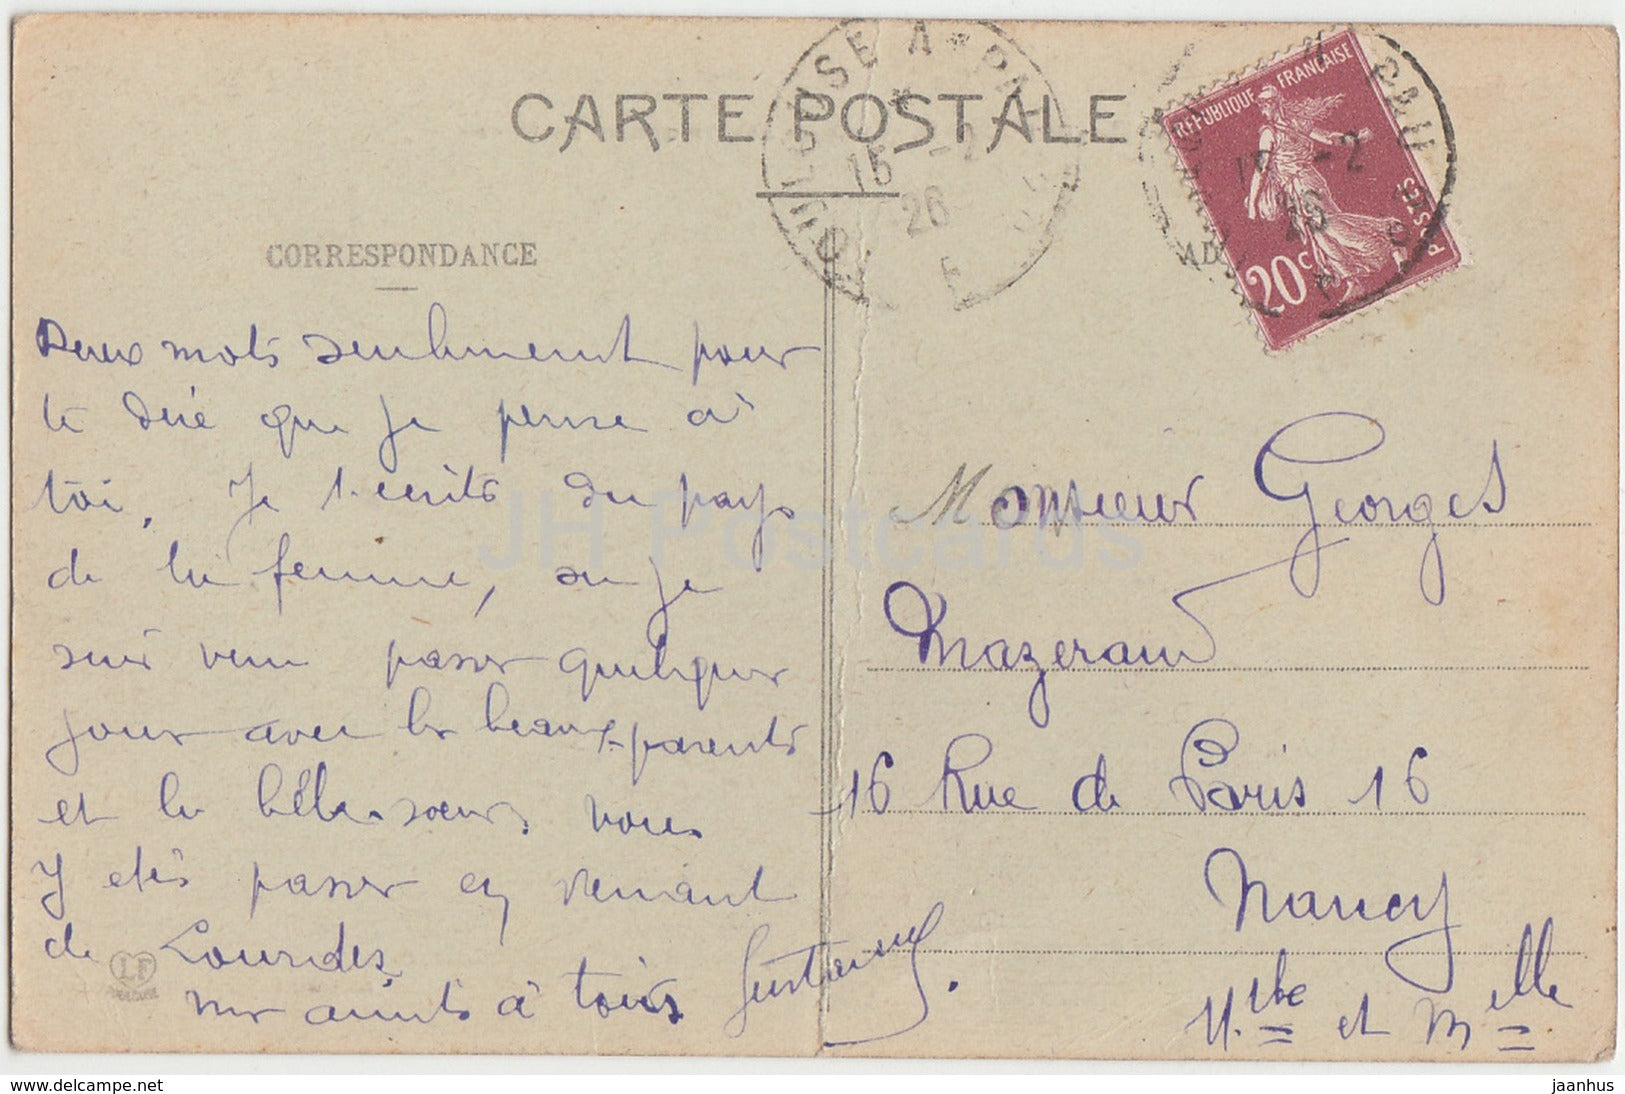 CARTE POSTALE
CORRESPONDANCE
Deux mots seulement pour
te dire que je pense à
toi. Je t'écrits du pays
de la femme, ou je
suis venu passer quelques
jours avec les beaux-parents
et la belle-soeur. Vous
y etès passer en venant
de Lourdes
mes amitiés à tous Gustave
LF
REPUBLIQUE FRANÇAISE
POSTES
20c
15 -2
26
-2
26
Monsieur Georges
Mazerand
16 Rue de Paris 16
Nancy
M.the et M.elle
JH Postcards
www.delcampe.net
jaanhus